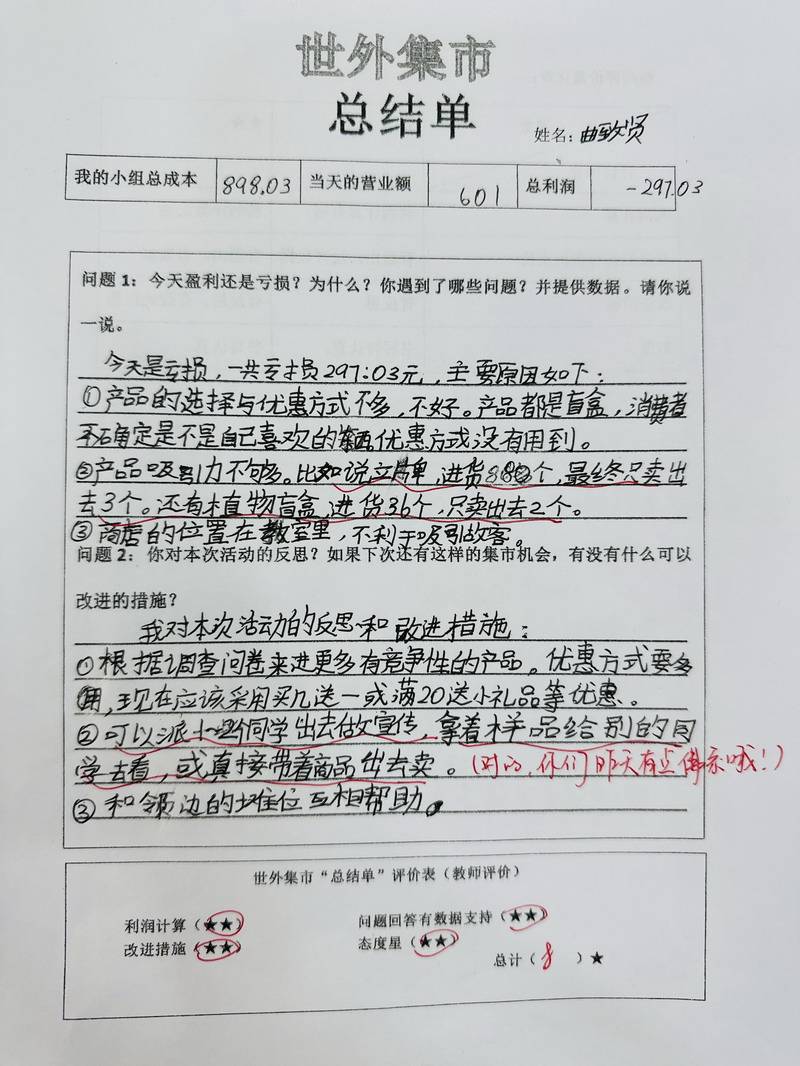 世外集市
总结单
姓名：曲致贤
我的小组总成本 898.03 当天的营业额 601 总利润 -297.03
问题 1：今天盈利还是亏损？为什么？你遇到了哪些问题？并提供数据。请你说
一说。
今天是亏损，一共亏损297.03元，主要原因如下：
①产品的选择与优惠方式不多，不好。产品都是盲盒，消费者
不确定是不是自己喜欢的 优惠方式没有用到。
②产品吸引力不够多。比如说立牌，进货 个，最终只卖出
去3个。还有植物盲盒，进货36个，只卖出去2个。
③商店的位置在教室里，不利于吸引故客。
问题 2：你对本次活动的反思？如果下次还有这样的集市机会，有没有什么可以
改进的措施？
我对本次活动的反思和改进措施：
①根据调查问卷来进更多有竞争性的产品。优惠方式要多
用，现在应该采用买几送一或满20送小礼品等优惠。
②可以派 同学出去做宣传，拿着样品给别的同
学去看，或直接带着商品出去卖。（对的，你们昨天有点佛系哦！）
③和邻边的摊位互相帮助。
世外集市“总结单”评价表（教师评价）
利润计算（★★） 问题回答有数据支持（★★）
改进措施（★★） 态度星（★★）
总计（8）★